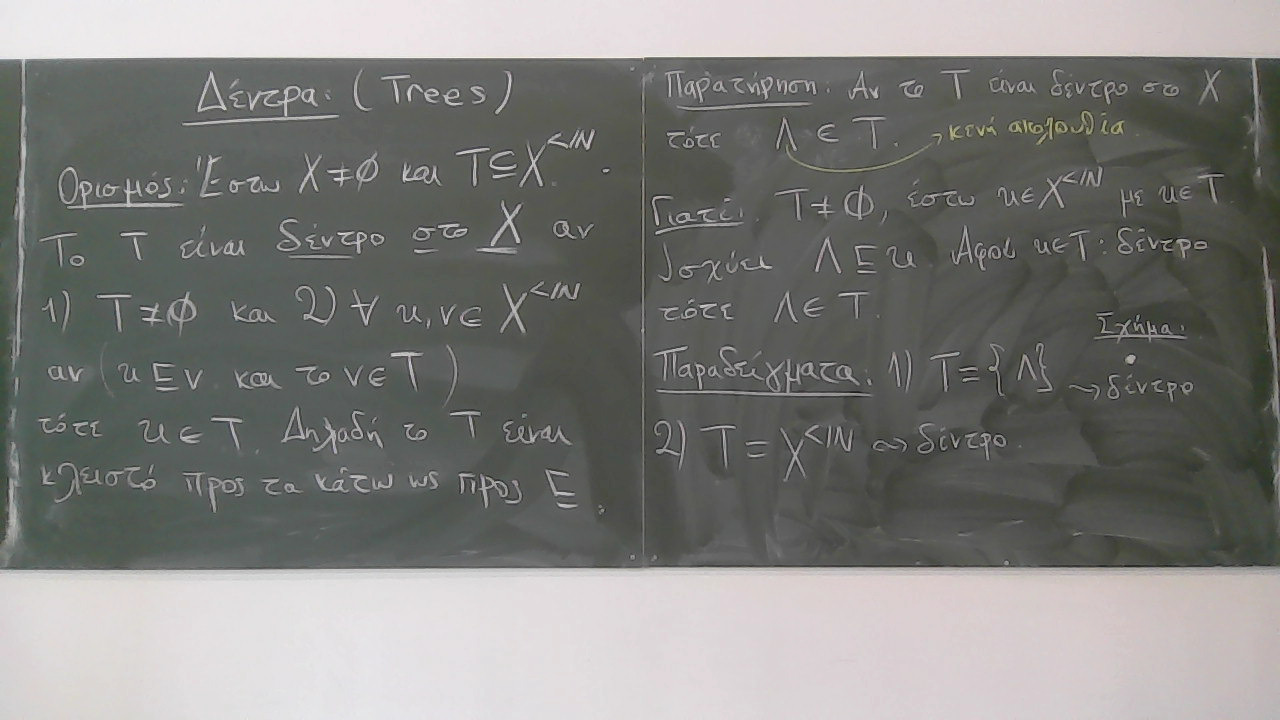 Δέντρα: (Trees)
Ορισμός: Έστω X ≠ ∅ και T ⊆ X^{<ℕ}.
Το T είναι δέντρο στο X αν
1) T ≠ ∅ και 2) ∀ u, v ∈ X^{<ℕ}
αν (u ⊑ v και το v ∈ T)
τότε u ∈ T. Δηλαδή το T είναι
κλειστό προς τα κάτω ως προς ⊑.
Παρατήρηση: Αν το T είναι δέντρο στο X
τότε Λ ∈ T. → κενή ακολουθία.
Γιατί: T ≠ ∅, έστω u ∈ X^{<ℕ} με u ∈ T
Ισχύει Λ ⊑ u Αφού u ∈ T: δέντρο
τότε Λ ∈ T.
Σχήμα:
Παραδείγματα: 1) T = {Λ} ⇝ δέντρο
2) T = X^{<ℕ} ⇝ δέντρο.